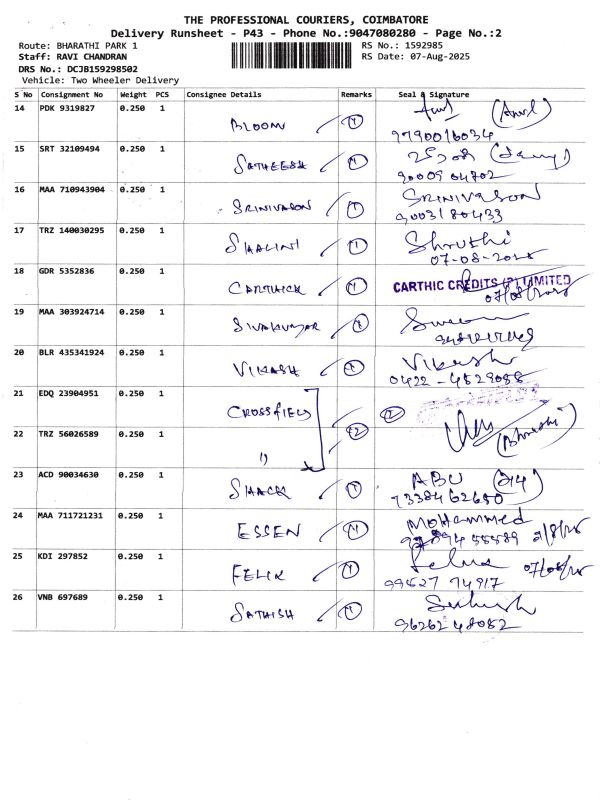 THE PROFESSIONAL COURIERS, COIMBATORE
Delivery Runsheet - P43 - Phone No.:9047080280 - Page No.:2
Route: BHARATHI PARK 1
RS No.: 1592985
Staff: RAVI CHANDRAN
RS Date: 07-Aug-2025
DRS No.: DCJB159298502
Vehicle: Two Wheeler Delivery
S No Consignment No Weight PCS Consignee Details Remarks Seal & Signature
14 PDK 9319827 0.250 1 BLOOM 1
9790016034
15 SRT 32109494 0.250 1 SATHEESH 1
16 MAA 710943904 0.250 1 SRINIVASON 1 SRINIVASON
9003180433
17 TRZ 140030295 0.250 1 SHALINI 1 Shruthi
07-08-2025
18 GDR 5352836 0.250 1 CARTHICK 1 CARTHIC CREDITS (P) LIMITED
07/08/2025
19 MAA 303924714 0.250 1 SIVAKUMAR 1
20 BLR 435341924 0.250 1 VIKASH 1 Vikash
0422-4529088
21 EDQ 23904951 0.250 1 CROSSFIELD 2
22 TRZ 56026589 0.250 1 11 2
23 ACD 90034630 0.250 1 SHACK 1 ABU
7338462680
24 MAA 711721231 0.250 1 ESSEN 1 Mohammed
25 KDI 297852 0.250 1 FELIX 1 07/08/25
99527 74917
26 VNB 697689 0.250 1 SATHISH 1
96262 48082